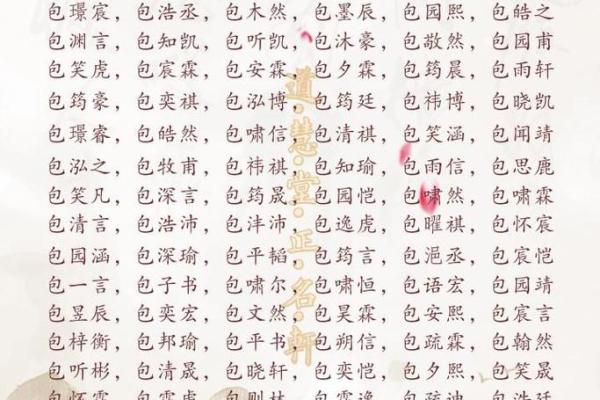 包璟宸，包浩丞，包木然，包墨辰，包园熙，包皓之
包渊言，包知凯，包听凯，包沐豪，包敬然，包园甫
包笑虎，包宸霖，包安霖，包夕霖，包筠晨，包雨轩
包筠豪，包奕祺，包泓博，包筠廷，包祎博，包晓凯
包璟睿，包皓然，包啸信，包清祺，包笑涵，包闻靖
包泓之，包牧甫，包祎祺，包知瑜，包雨信，包思鹿
包笑凡，包深言，包筠晟，包园恺，包啸然，包啸霖
包清言，包浩沛，包沣沛，包逸虎，包曜祺，包怀宸
包园涵，包深瑜，包平韬，包筠言，包浥丞，包宸恺
包一言，包子书，包啸尔，包啸恒，包语宏，包园靖
包昱辰，包奕宏，包文然，包昊霖，包安熙，包宸言
包梓衡，包邦瑜，包平书，包朔信，包疏霖，包翰然
包听彬，包清晟，包晓轩，包奕恺，包夕熙，包笑晟
道·慧·堂·正·名·轩